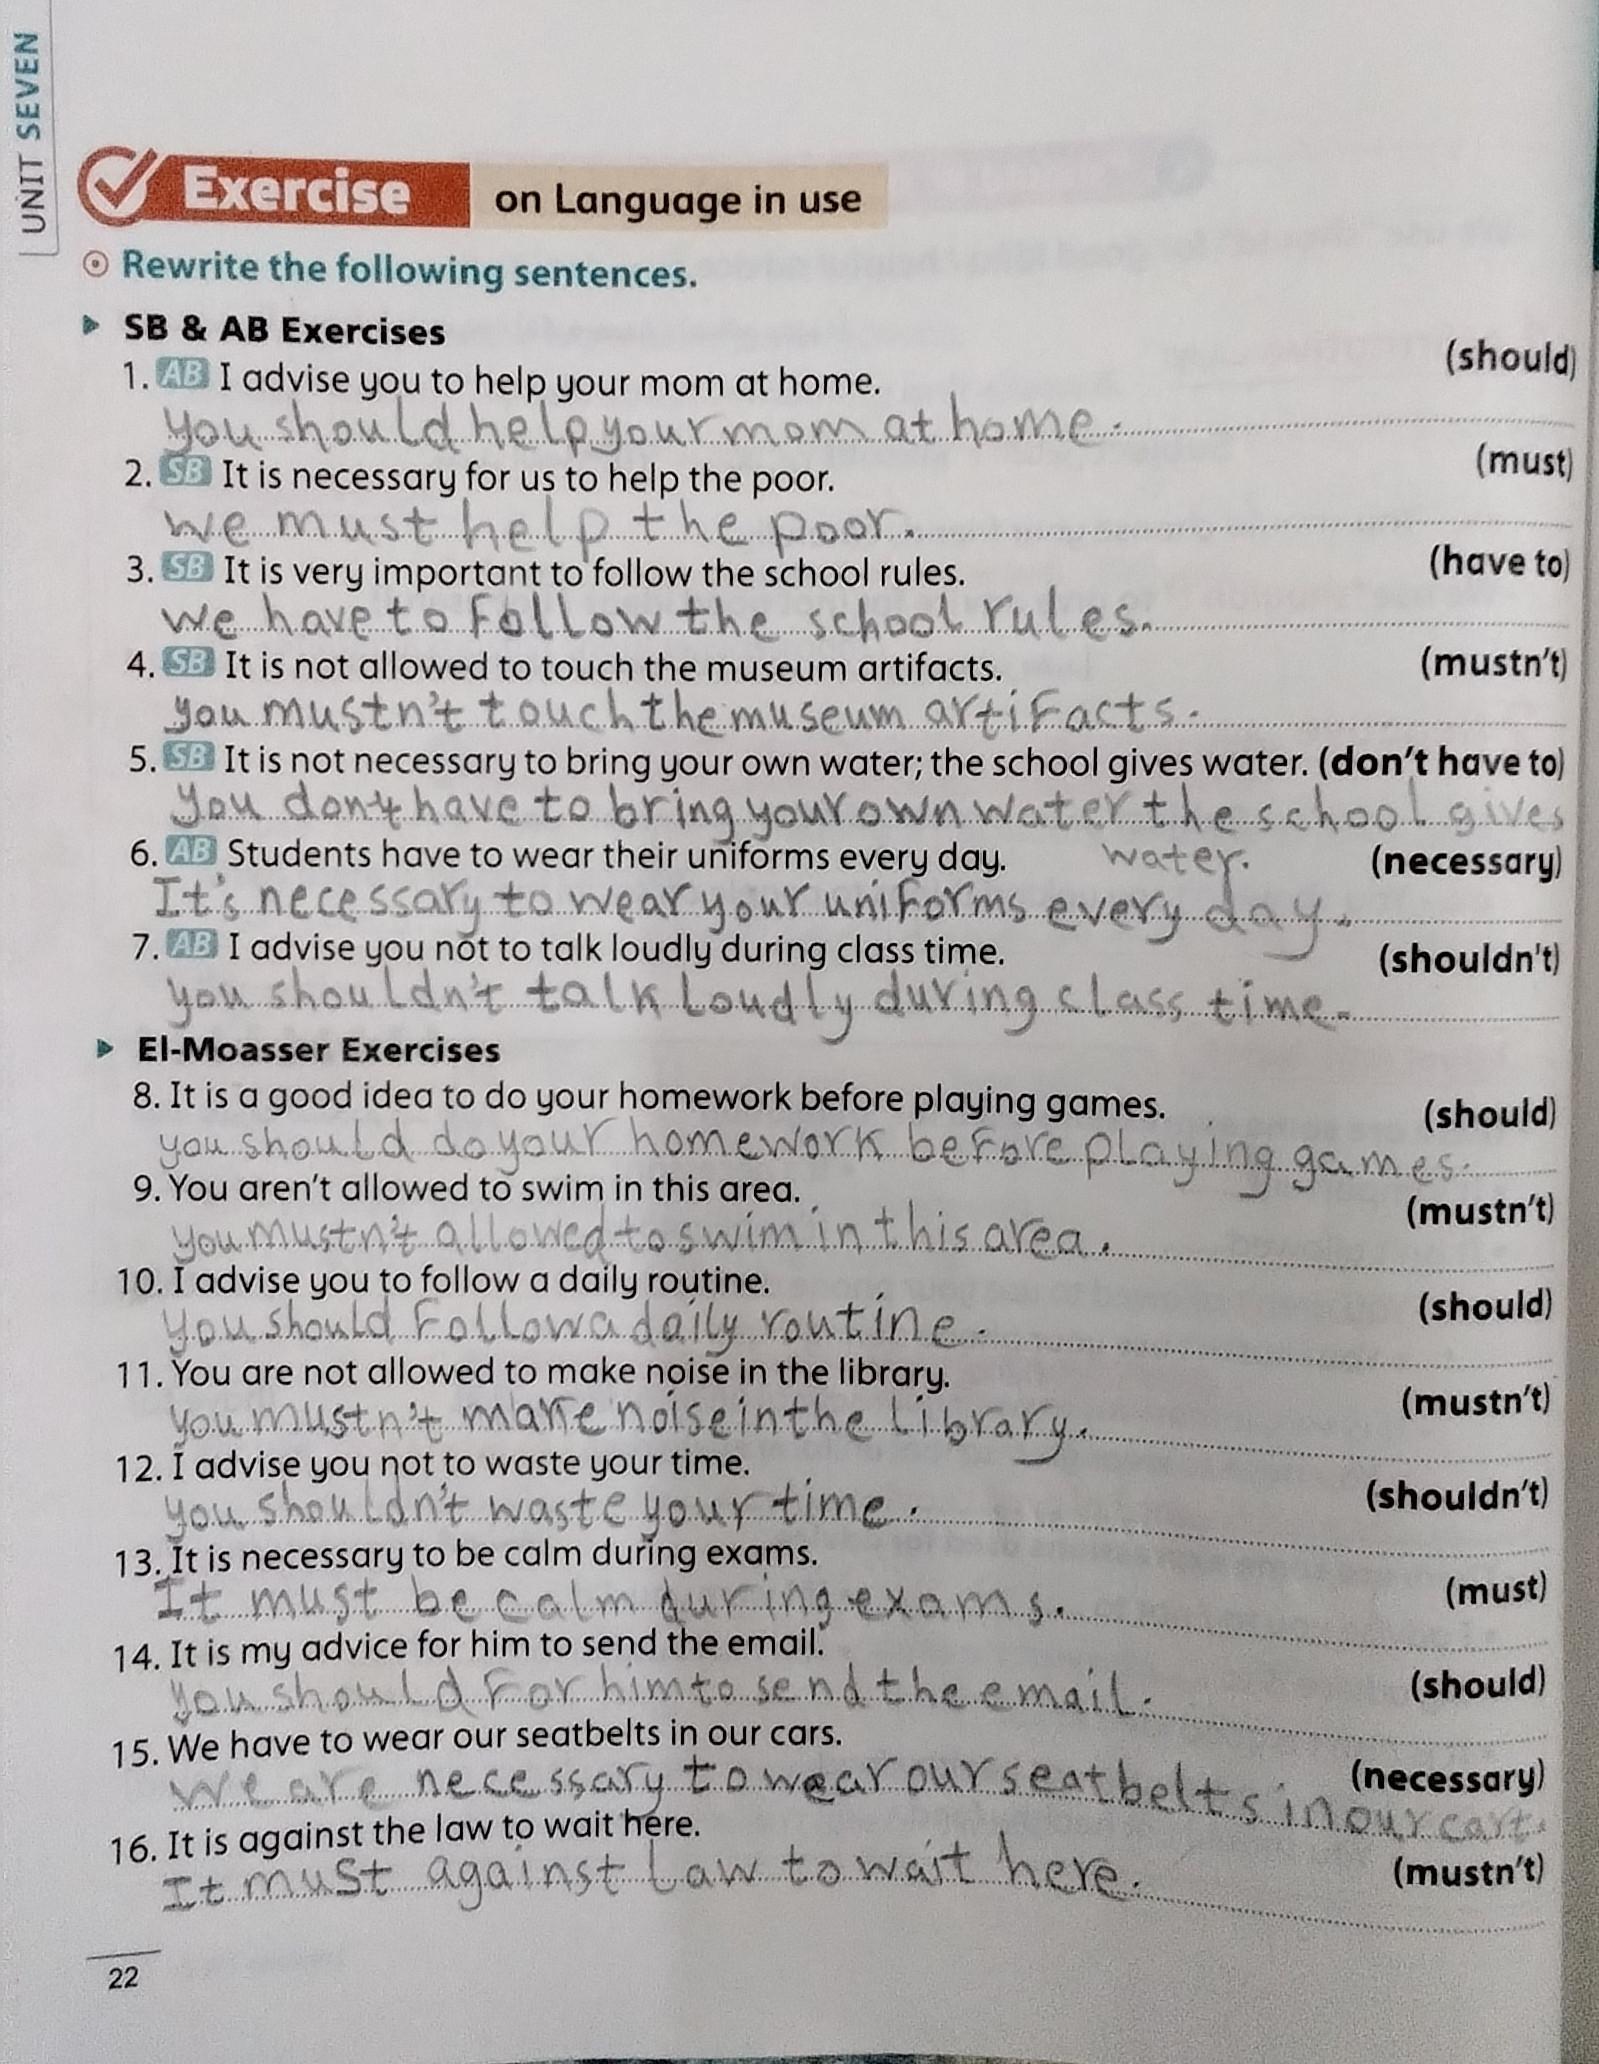 UNIT SEVEN
Exercise on Language in use
Rewrite the following sentences.
SB & AB Exercises
1. AB I advise you to help your mom at home. (should)
you should help your mom at home.
2. SB It is necessary for us to help the poor. (must)
we must help the poor.
3. SB It is very important to follow the school rules. (have to)
we have to follow the school rules.
4. SB It is not allowed to touch the museum artifacts. (mustn't)
you mustn't touch the museum artifacts.
5. SB It is not necessary to bring your own water; the school gives water. (don't have to)
you don't have to bring your own water the school gives
water.
6. AB Students have to wear their uniforms every day. (necessary)
It's necessary to wear your uniforms every day.
7. AB I advise you not to talk loudly during class time. (shouldn't)
you shouldn't talk loudly during class time.
El-Moasser Exercises
8. It is a good idea to do your homework before playing games. (should)
you should do your homework before playing games.
9. You aren't allowed to swim in this area. (mustn't)
you mustn't allowed to swim in this area.
10. I advise you to follow a daily routine. (should)
you should follow a daily routine.
11. You are not allowed to make noise in the library. (mustn't)
you mustn't make noise in the library.
12. I advise you not to waste your time. (shouldn't)
you shouldn't waste your time.
13. It is necessary to be calm during exams. (must)
It must be calm during exams.
14. It is my advice for him to send the email. (should)
you should for him to send the email.
15. We have to wear our seatbelts in our cars. (necessary)
we are necessary to wear our seatbelts in our cart.
16. It is against the law to wait here. (mustn't)
It must against law to wait here.
22